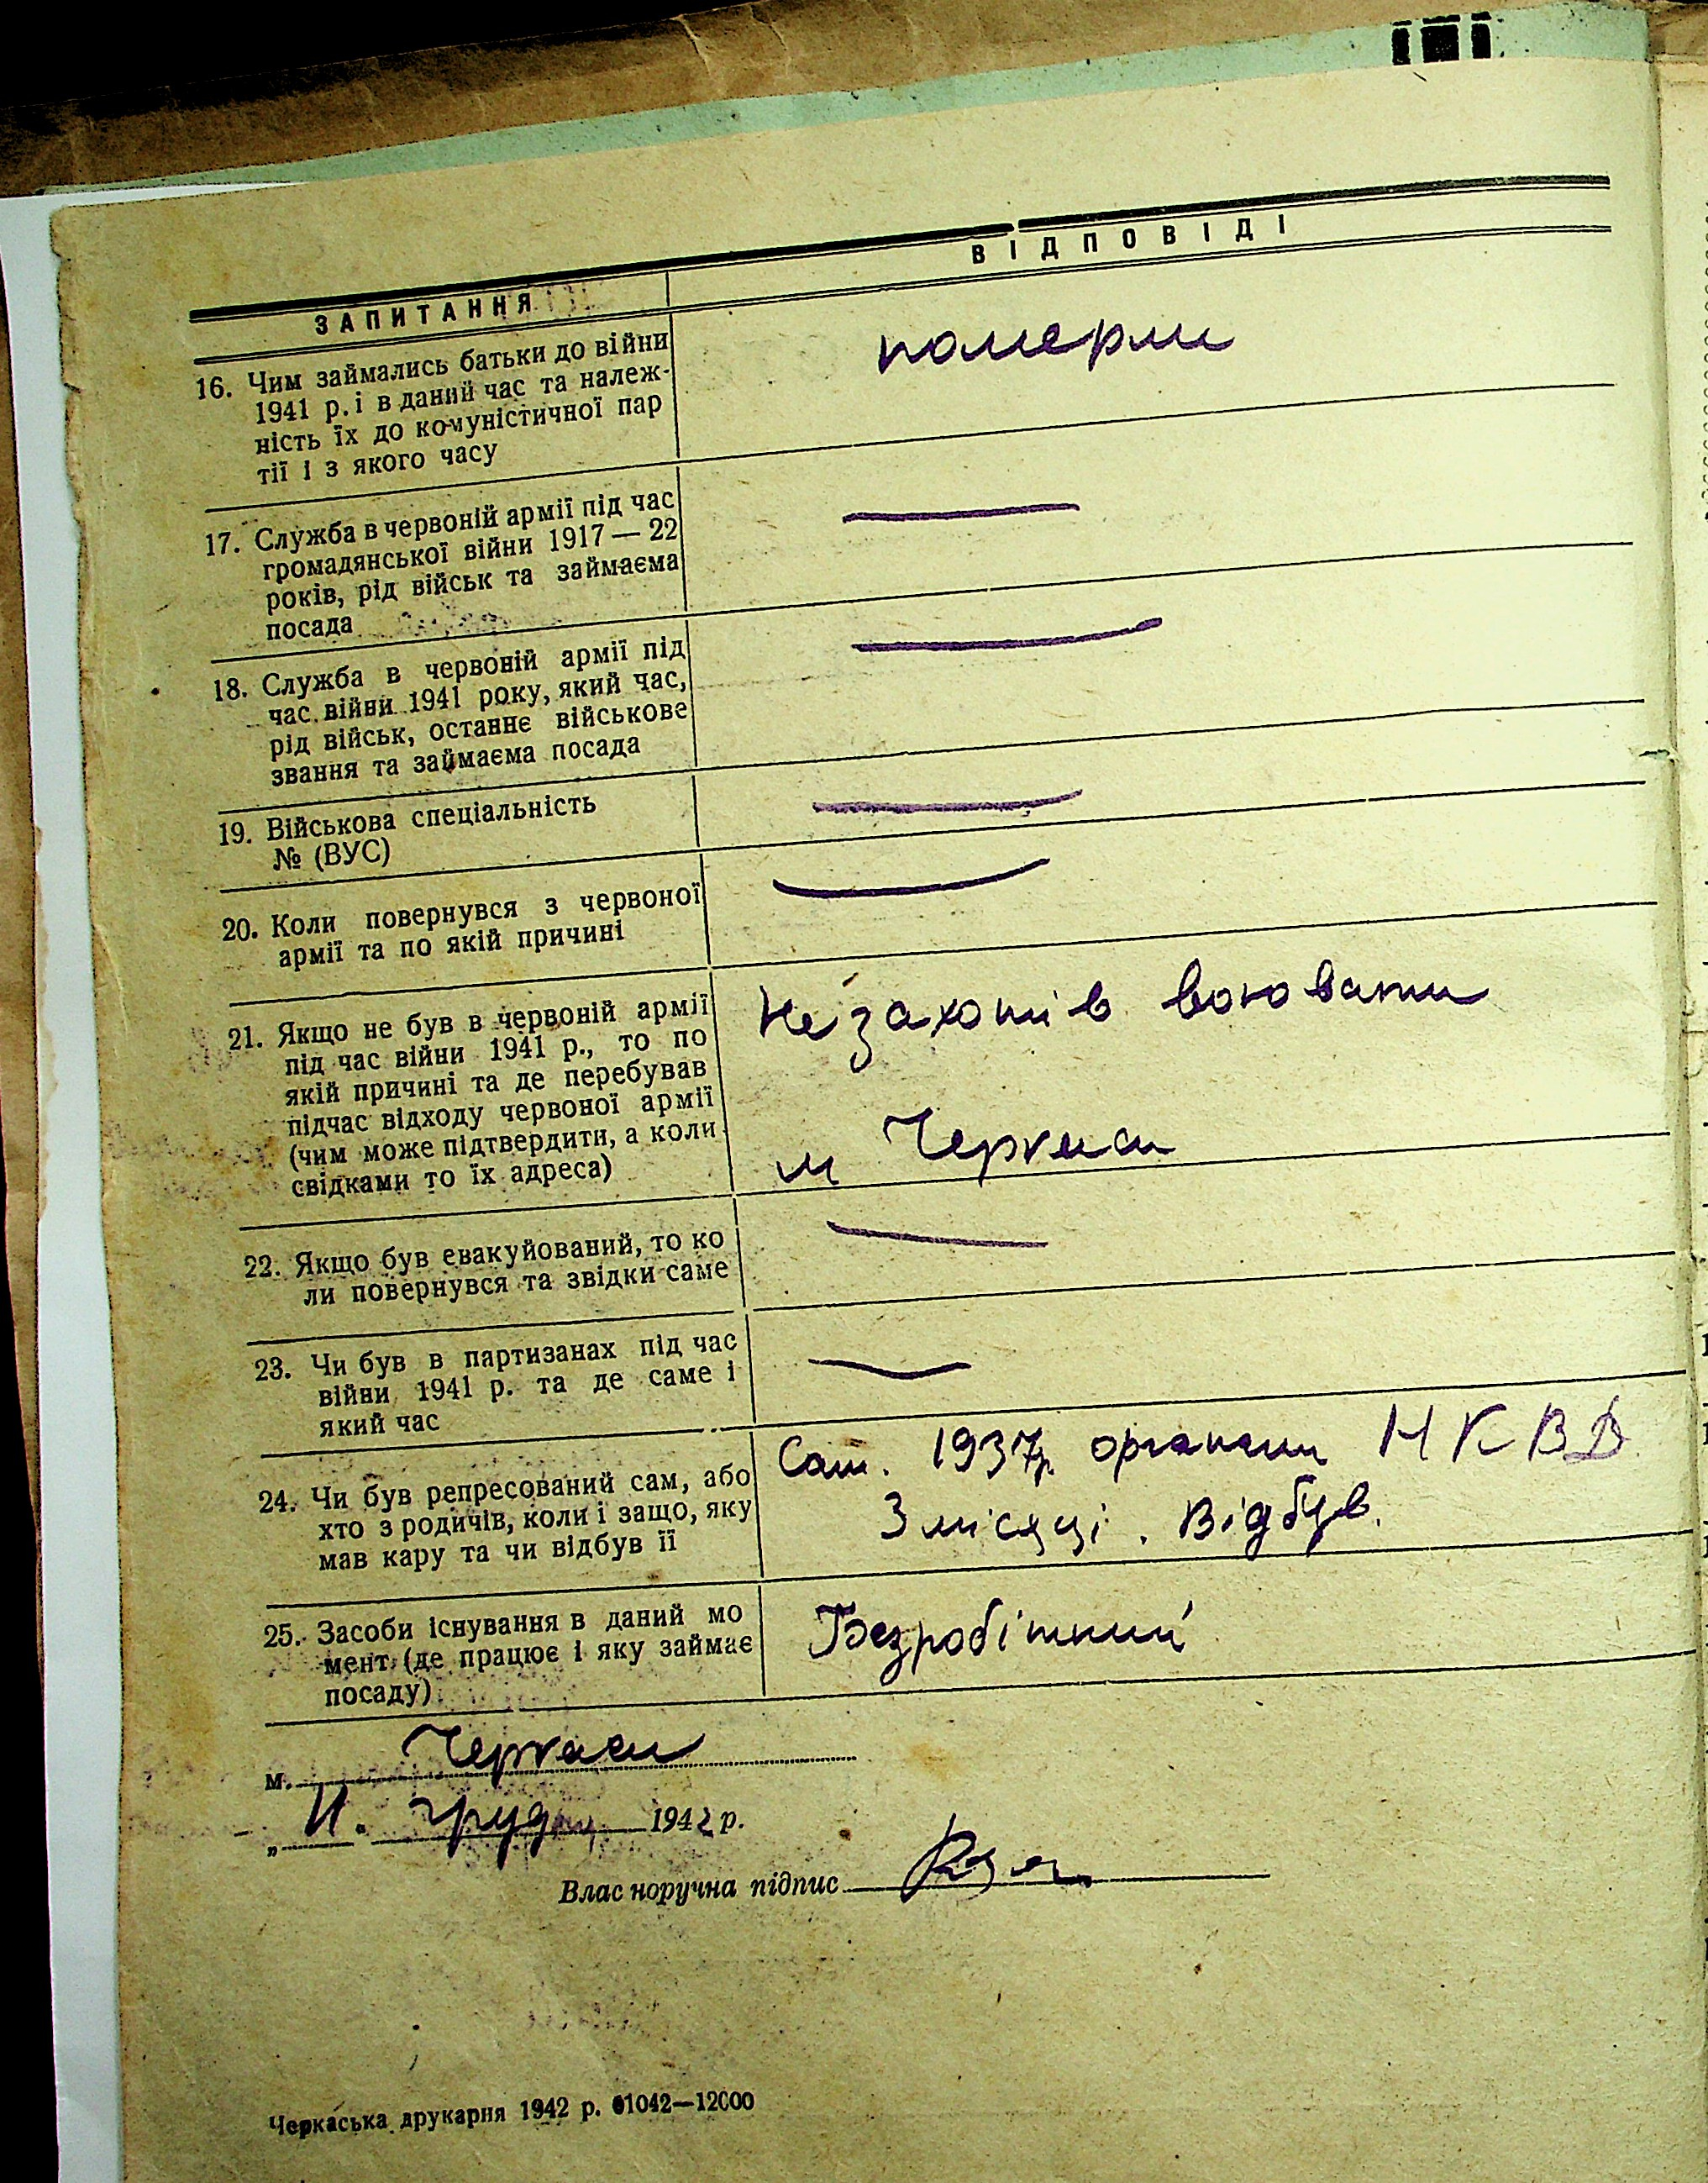 ЗАПИТАННЯ
ВІДПОВІДІ
16. Чим займались батьки до війни
1941 р. і в даний час та належ-
ність їх до комуністичної пар
тії і з якого часу
померли
17. Служба в червоній армії під час
громадянської війни 1917 — 22
років, рід військ та займаєма
посада
18. Служба в червоній армії під
час війни 1941 року, який час,
рід військ, останнє військове
звання та займаєма посада
19. Військова спеціальність
№ (ВУС)
20. Коли повернувся з червоної
армії та по якій причині
21. Якщо не був в червоній армії
під час війни 1941 р., то по
якій причині та де перебував
підчас відходу червоної армії
(чим може підтвердити, а коли
свідками то їх адреса)
Не захотів воювати
м Черкаси
22. Якщо був евакуйований, то ко
ли повернувся та звідки саме
23. Чи був в партизанах під час
війни 1941 р. та де саме і
який час
24. Чи був репресований сам, або
хто з родичів, коли і защо, яку
мав кару та чи відбув її
Сам. 1937р. органами НКВД
3 місяці. Відбув.
25. Засоби існування в даний мо
мент (де працює і яку займає
посаду)
Безробітний
м. Черкаси
„ 11. груд 1942 р.
Власноручна підпис
Черкаська друкарня 1942 р. 61042—12000